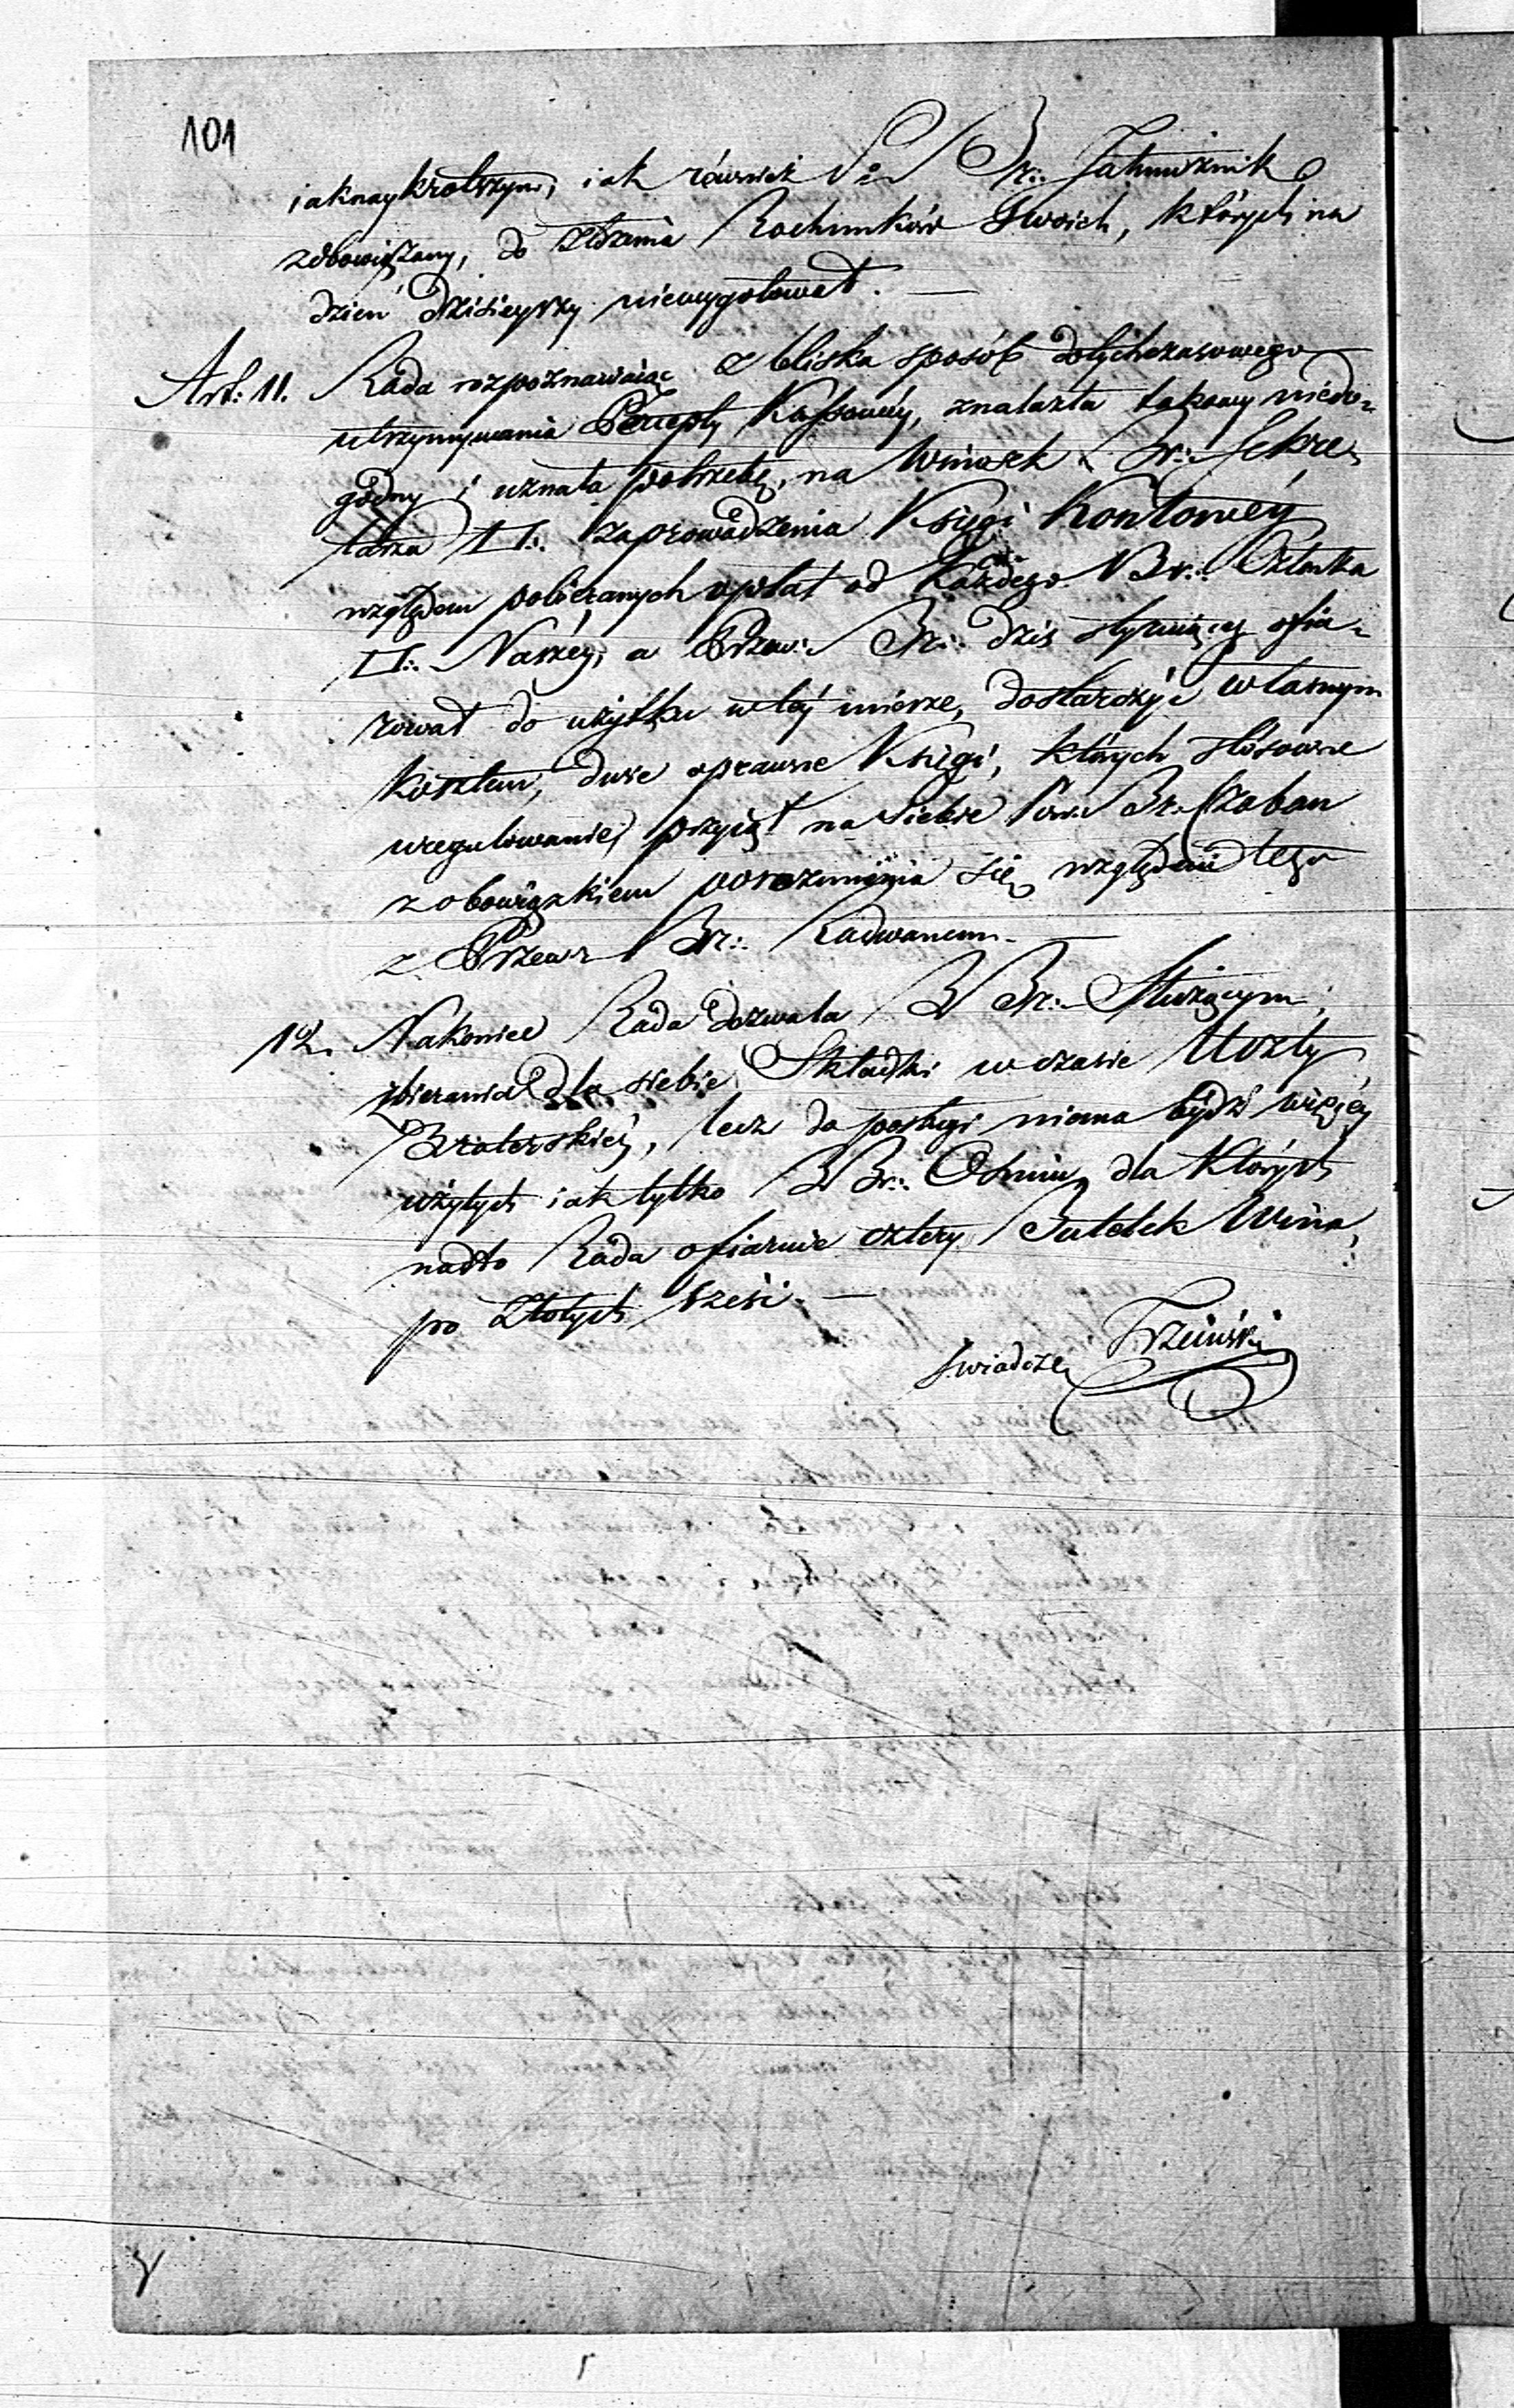 101
iaknaykrotszym, iak również Br∴ Jałmużnik
zobowiązany, do złożenia Rachunków Swoich, których na
dzień dzisieyszy niewygotował. —
Art: 11. Rada rozpoznawaiąc z bliska sposób dotychczasowego
utrzymywania Percepty Kassowéy, znalazła takowy niedo-
godny i uznała potrzebę, na Wniosek Br∴ Sekre-
tarza □∴ zaprowadzenia Księgi Kontowéy
względem pobieranych opłat od Każdego Br∴ Członka
□∴ Naszéy, a Przew∴ Br∴ dziś ofia-
rował do użytku w téy mierze, dostarczyć własnym
kosztem, dwie oprawne Księgi, których stosowne
uregulowanie, przyiął na Siebie Br∴ Czaban
z obowiązkiem porozumienia się względem tego
z Przew∴ Br∴ Radwanem. —
12. Nakoniec Rada dozwala BBr∴ Służącym,
zbierania dla siebie Składki w czasie Uczty
Braterskiéy, lecz do posługi niema bydź więcéy
użytych iak tylko BBr∴ Ośmiu, dla Których
nadto Rada ofiaruie cztery Butelek Wina,
po Złotych sześć. —
Swiadczę Trzciński